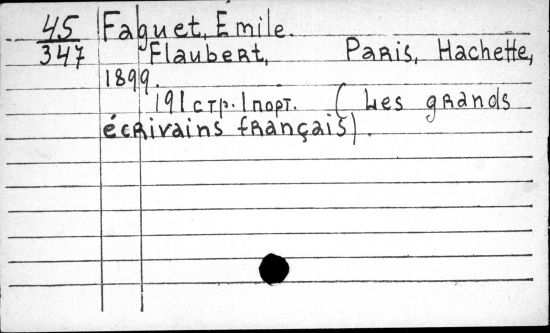 45 Faguet, Emile.
347 Flaubert, Paris, Hachette,
1899.
191 стр. 1 порт. (Les grands
écrivains français).